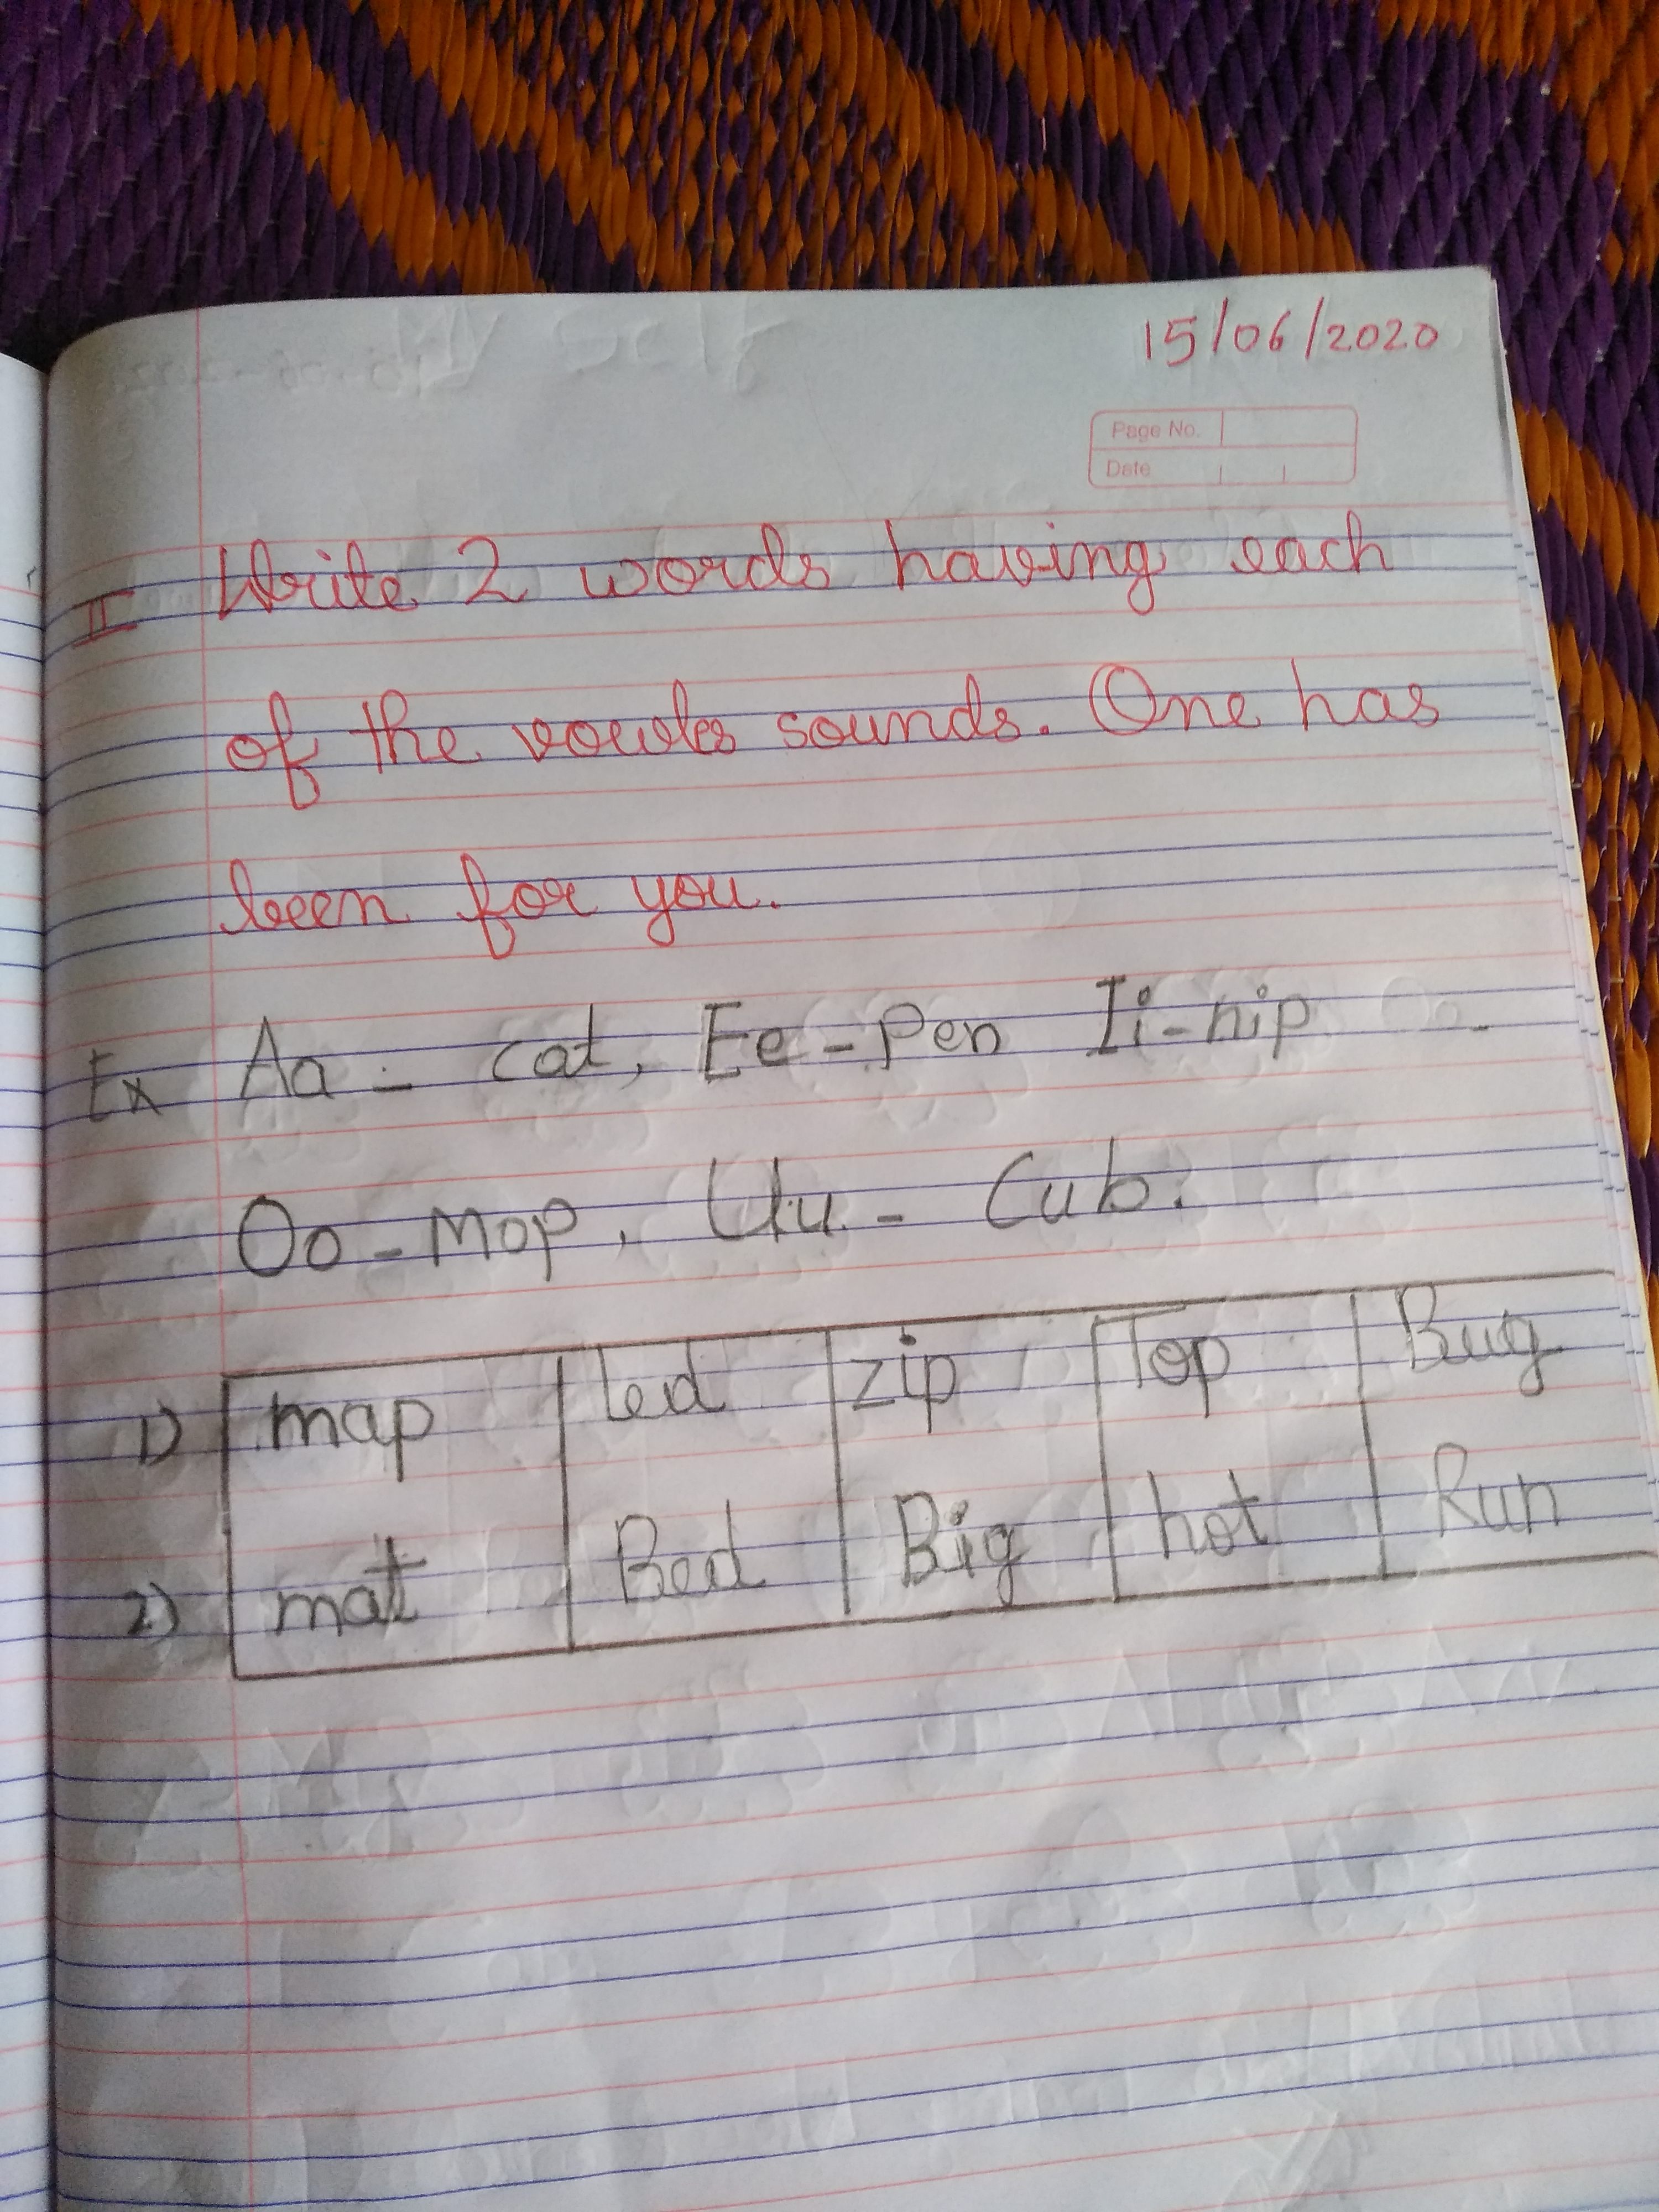 15/06/2020
Page No.
Date
II Write 2 words having each
of the vowels sounds. One has
been for you.
Ex Aa - cat, Ee - Pen Ii - nip
Oo - Mop, Uu - Cub.
1) map led zip Top Bug
2) mat Bed Big hot Run